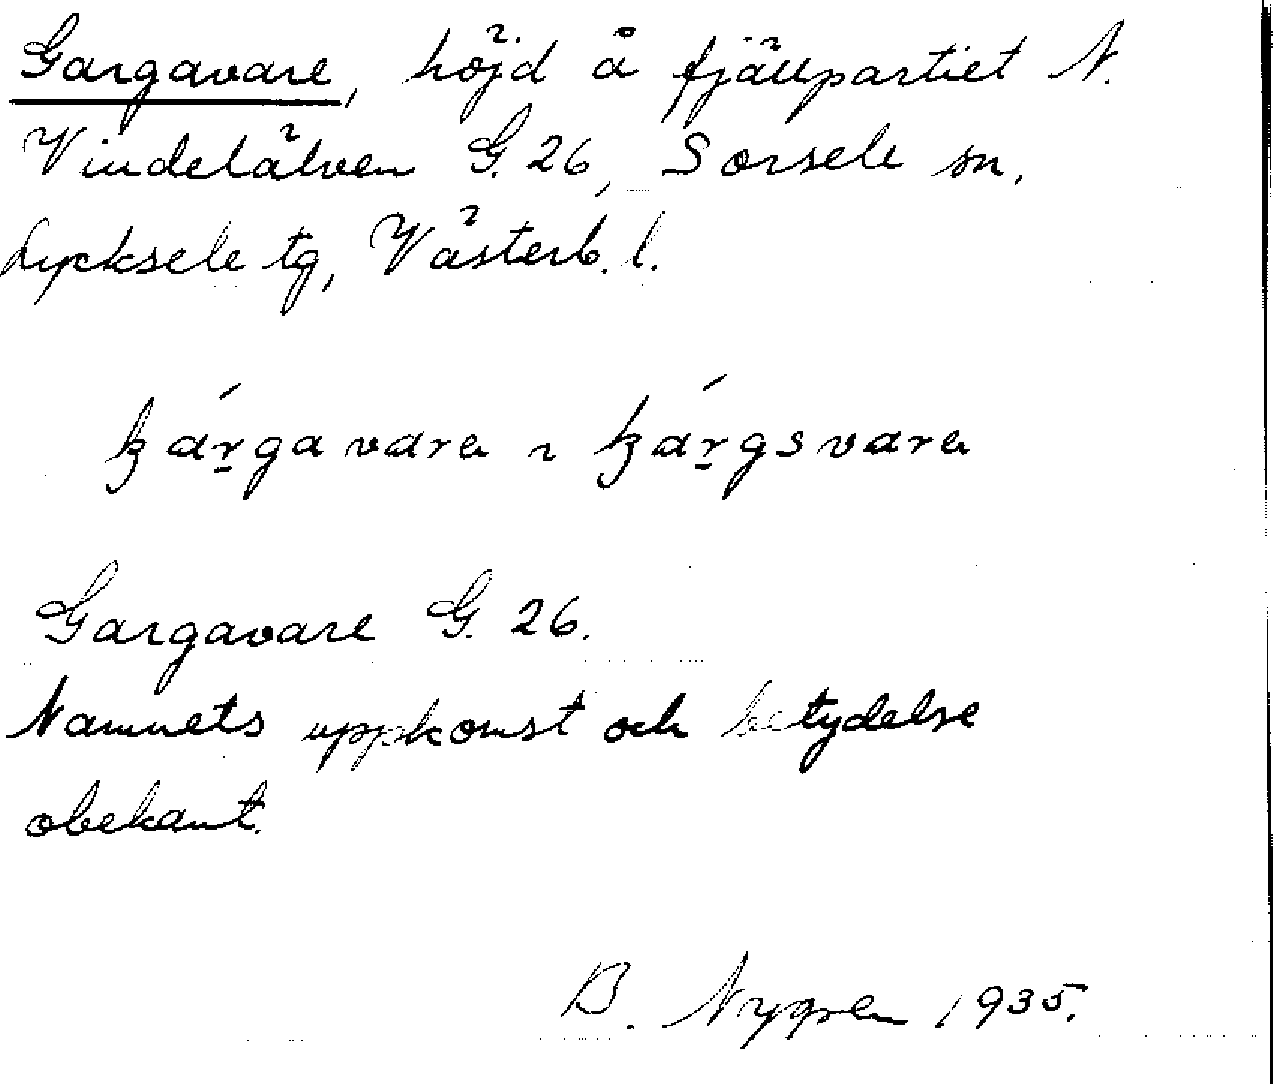 Gargavare, höjd å fjällpartiet N.
Vindelälven G. 26, Sorsele sn.
Lycksele tg, Västerb. l.
Gargavare G. 26.
Namnets uppkomst och betydelse
obekant.
B. Nygren 1935.